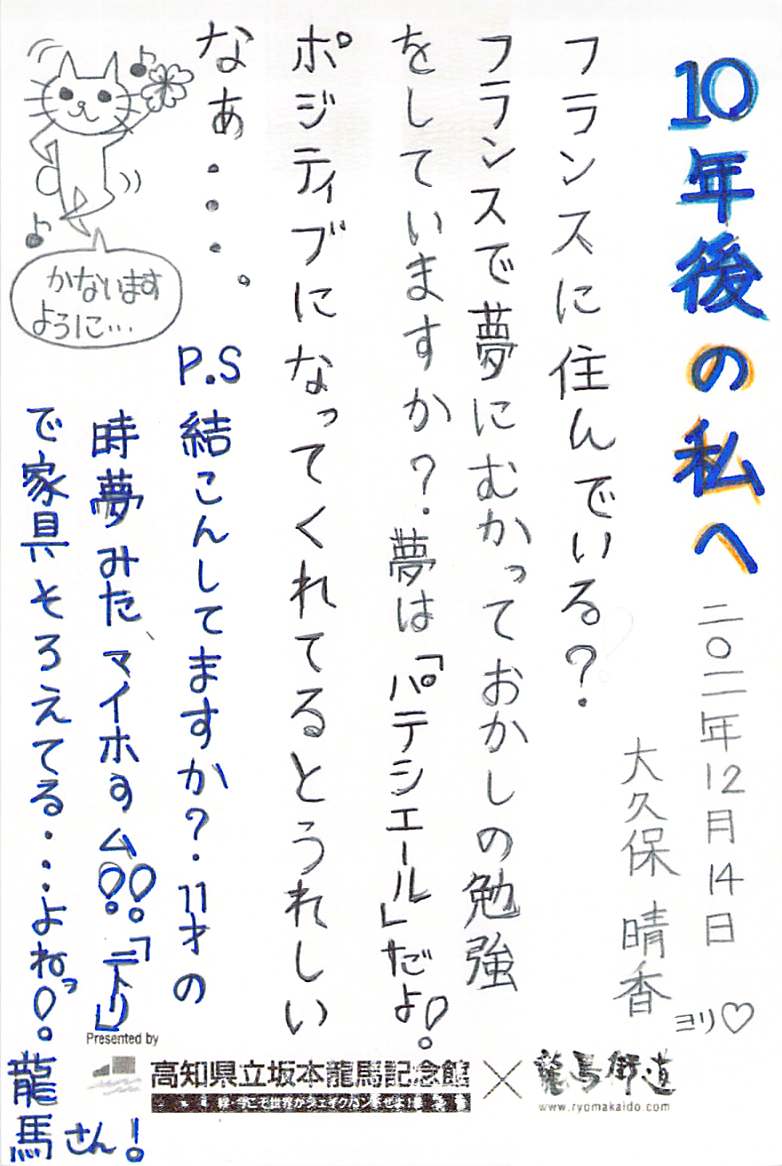 10年後の私へ
二〇二二年12月14日
大久保 晴香
ヨリ♡
フランスに住んでいる?
フランスで夢にむかっておかしの勉強
をしていますか?夢は「パテシエール」だよ!
ポジティブになってくれてるとうれしい
なぁ・・・。
かないます
ように…
P.S 結こんしてますか?11才の
時夢みた、マイホーム!!「ニトリ」
で家具そろえてる…よねっ!
龍馬さん!
Presented by
高知県立坂本龍馬記念館
×
龍馬街道
www.ryomakaido.com